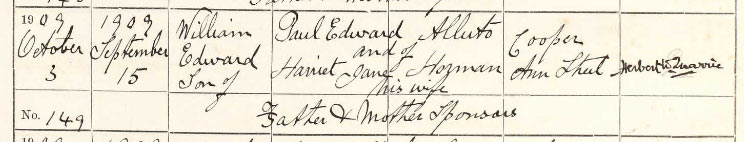 1909 1909 William Paul Edward Alluto Cooper
October September Edward and of Ann Street Herbert
3 15 Son of Harriet Jane Hozman
his wife
No. 149 Father & Mother Sponsors